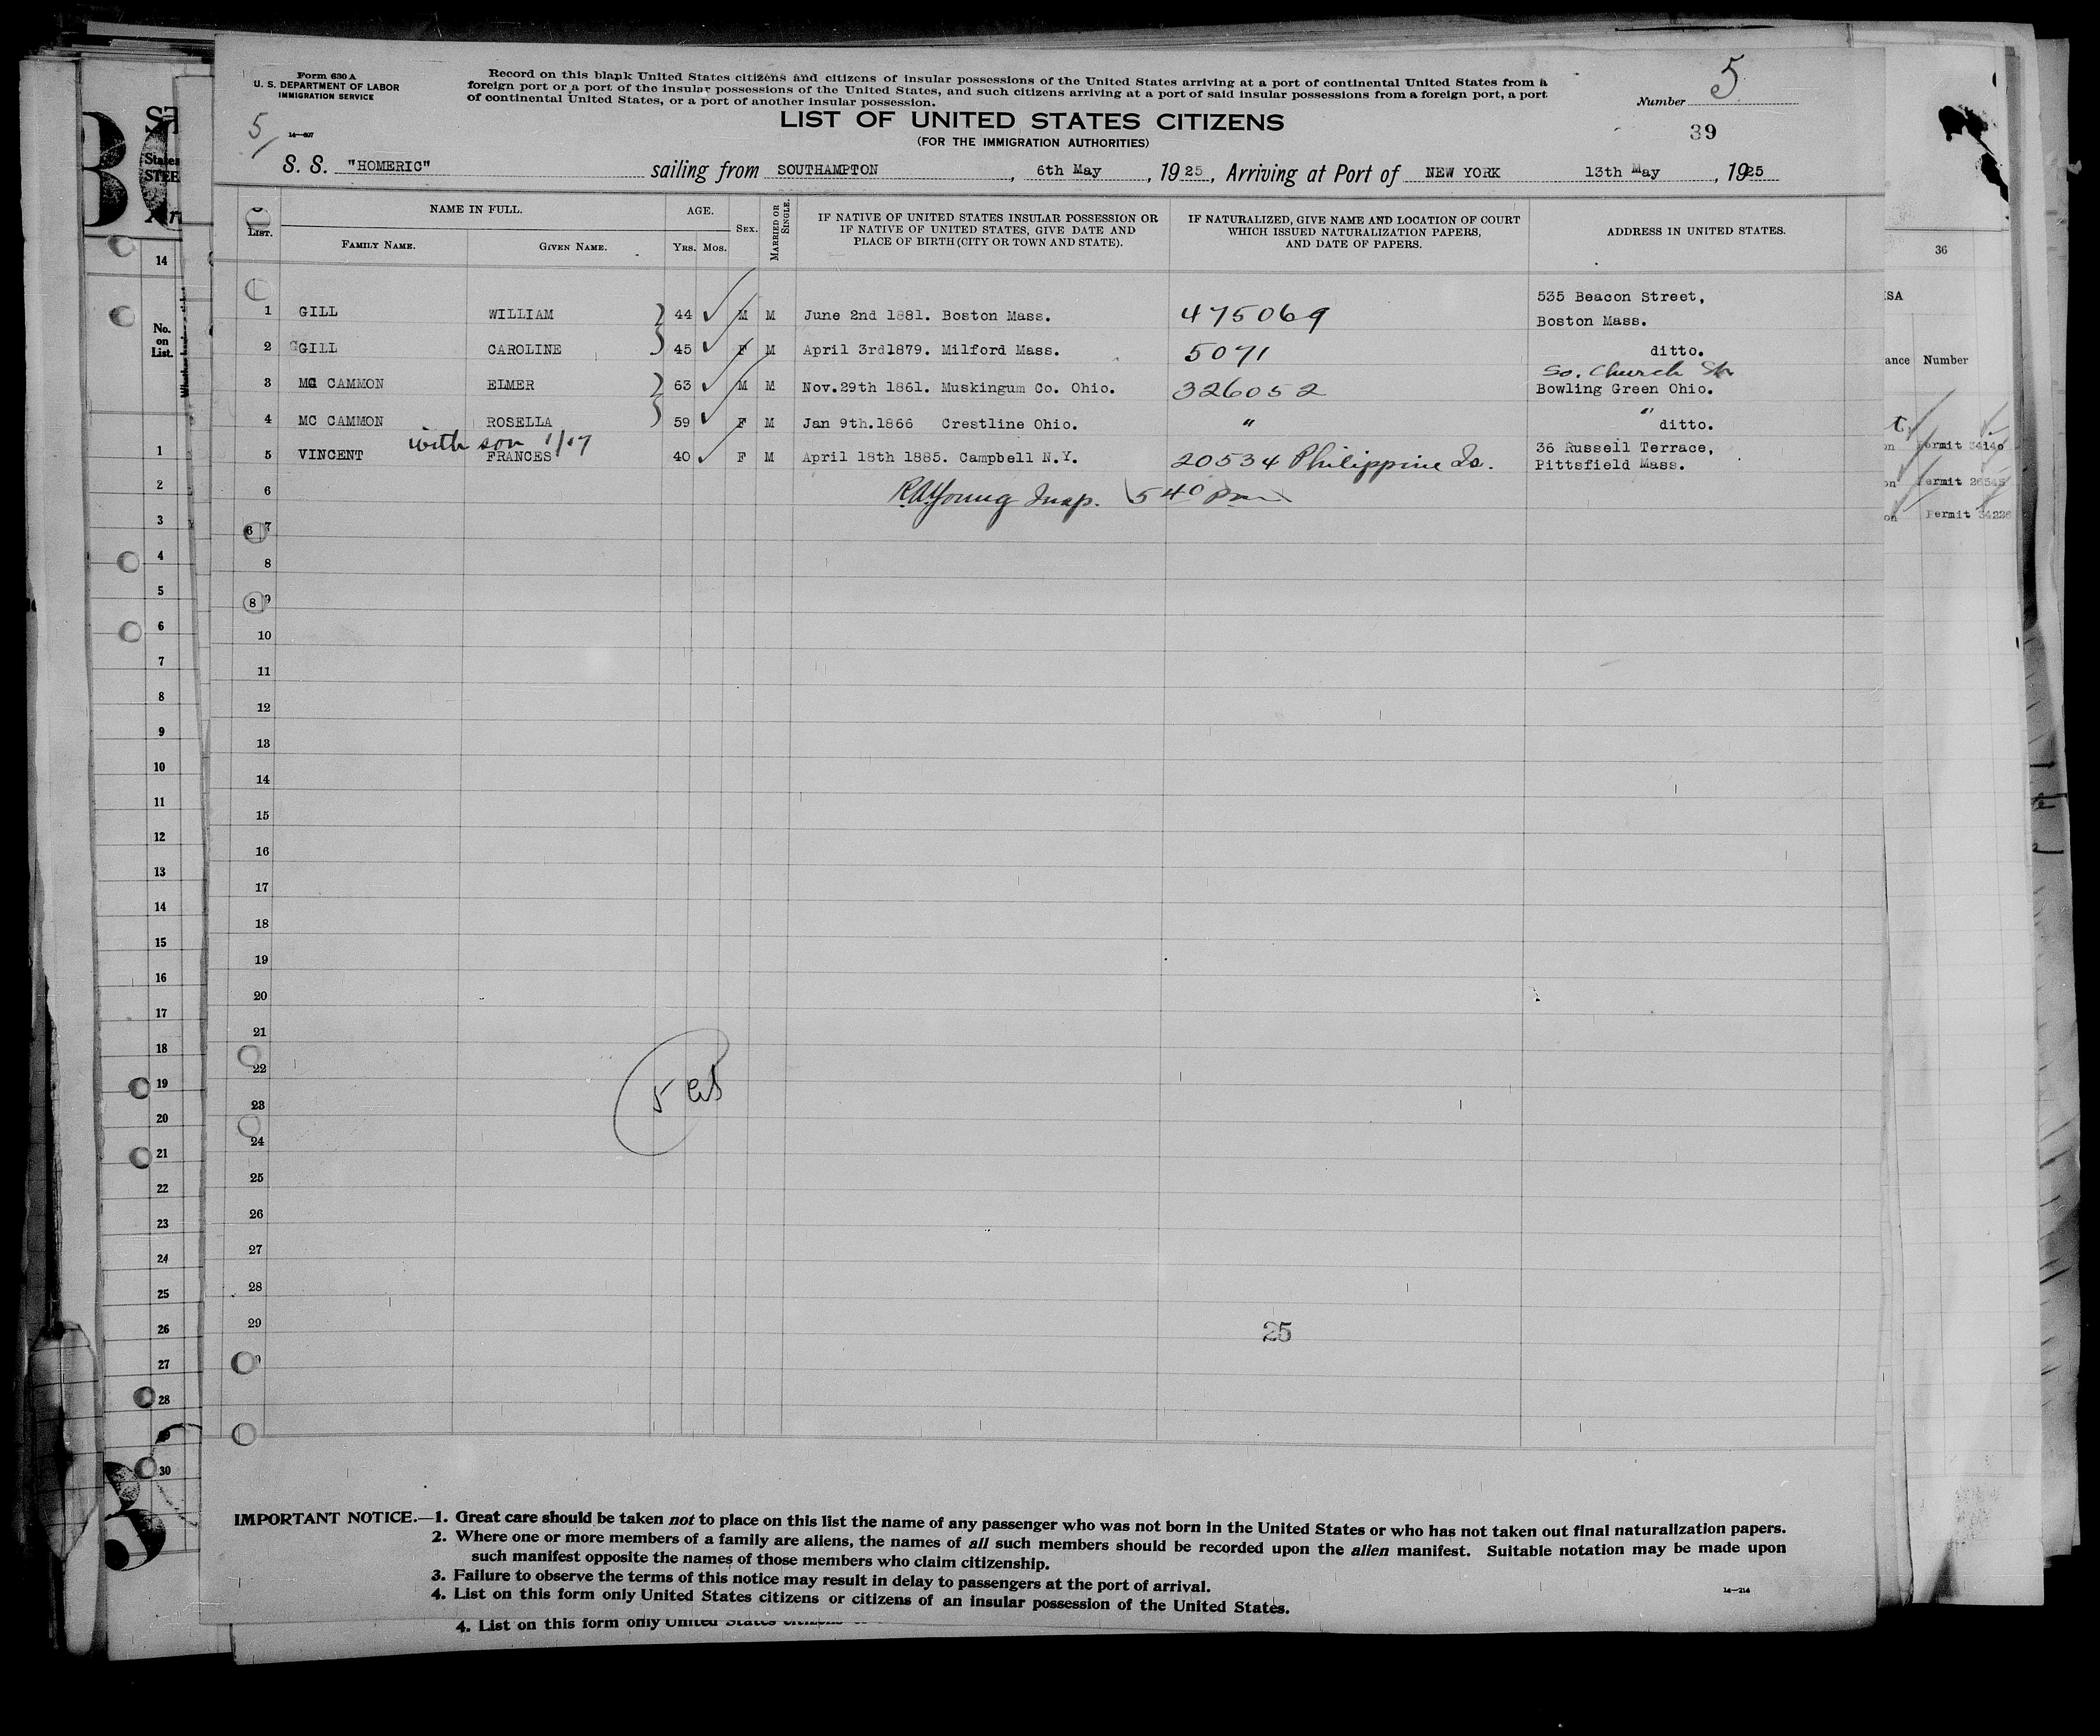 Form 630 A
U. S. DEPARTMENT OF LABOR
IMMIGRATION SERVICE
14—607
Record on this blank United States citizens and citizens of insular possessions of the United States arriving at a port of continental United States from a
foreign port or a port of the insular possessions of the United States, and such citizens arriving at a port of said insular possessions from a foreign port, a port
of continental United States, or a port of another insular possession.
Number 5
5/
LIST OF UNITED STATES CITIZENS
(FOR THE IMMIGRATION AUTHORITIES)
39
S. S. "HOMERIC" sailing from SOUTHAMPTON, 6th May, 1925, Arriving at Port of NEW YORK 13th May, 1925
LIST. NAME IN FULL. AGE. SEX. MARRIED OR SINGLE. IF NATIVE OF UNITED STATES INSULAR POSSESSION OR IF NATIVE OF UNITED STATES, GIVE DATE AND PLACE OF BIRTH (CITY OR TOWN AND STATE). IF NATURALIZED, GIVE NAME AND LOCATION OF COURT WHICH ISSUED NATURALIZATION PAPERS, AND DATE OF PAPERS. ADDRESS IN UNITED STATES.
FAMILY NAME. GIVEN NAME. YRS. MOS.
1 GILL WILLIAM 44 M M June 2nd 1881. Boston Mass. 475069 535 Beacon Street, Boston Mass.
2 GILL CAROLINE 45 F M April 3rd1879. Milford Mass. 5071 ditto.
So. Church St
3 MC CAMMON ELMER 63 M M Nov.29th 1861. Muskingum Co. Ohio. 326052 Bowling Green Ohio.
4 MC CAMMON ROSELLA 59 F M Jan 9th.1866 Crestline Ohio. " " ditto.
with son 1/17
5 VINCENT FRANCES 40 F M April 18th 1885. Campbell N.Y. 20534 Philippine Is. 36 Russell Terrace, Pittsfield Mass.
6 R.A.Young Insp. 540 pm
7
8
9
10
11
12
13
14
15
16
17
18
19
20
21
22
23
24
25
26
27
28
29
5
25
IMPORTANT NOTICE.—1. Great care should be taken not to place on this list the name of any passenger who was not born in the United States or who has not taken out final naturalization papers.
2. Where one or more members of a family are aliens, the names of all such members should be recorded upon the alien manifest. Suitable notation may be made upon
such manifest opposite the names of those members who claim citizenship.
3. Failure to observe the terms of this notice may result in delay to passengers at the port of arrival.
4. List on this form only United States citizens or citizens of an insular possession of the United States.
14—214
4. List on this form only United States citizens
14
No. on List.
1
2
3
4
5
6
7
8
9
10
11
12
13
14
15
16
17
18
19
20
21
22
23
24
25
26
27
28
30
36
Number
Permit 34140
Permit 26545
Permit 34226